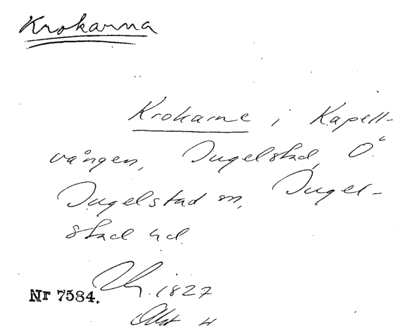 Krokarna
Krokarne i Kapell-
vången, Ingelstad, Ö.
Ingelstad sn, Ingel-
stad hd.
1827
Nr 7584.